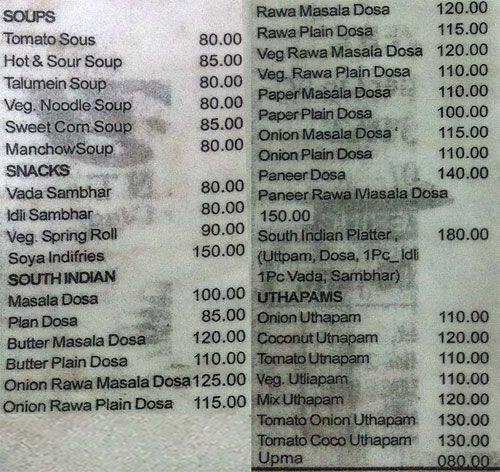 SOUPS
Tomato Sous 80.00
Hot & Sour Soup 85.00
Talumein Soup 80.00
Veg. Noodle Soup 80.00
Sweet Corn Soup 85.00
ManchowSoup 80.00
SNACKS
Vada Sambhar 80.00
Idli Sambhar 80.00
Veg. Spring Roll 90.00
Soya Indifries 150.00
SOUTH INDIAN
Masala Dosa 100.00
Plan Dosa 85.00
Butter Masala Dosa 120.00
Butter Plain Dosa 110.00
Onion Rawa Masala Dosa 125.00
Onion Rawa Plain Dosa 115.00
Rawa Masala Dosa 120.00
Rawa Plain Dosa 115.00
Veg Rawa Masala Dosa 120.00
Veg. Rawa Plain Dosa 110.00
Paper Masala Dosa 110.00
Paper Plain Dosa 100.00
Onion Masala Dosa 115.00
Onion Plain Dosa 110.00
Paneer Dosa 140.00
Paneer Rawa Masala Dosa
150.00
South Indian Platter, 180.00
(Uttpam, Dosa, 1Pc_ Idli
1Pc Vada, Sambhar)
UTHAPAMS
Onion Uthapam 110.00
Coconut Utnapam 120.00
Tomato Utnapam 110.00
Veg. Utliapam 110.00
Mix Uthapam 120.00
Tomato Onion Uthapam 130.00
Tomato Coco Uthapam 130.00
Upma 080.00